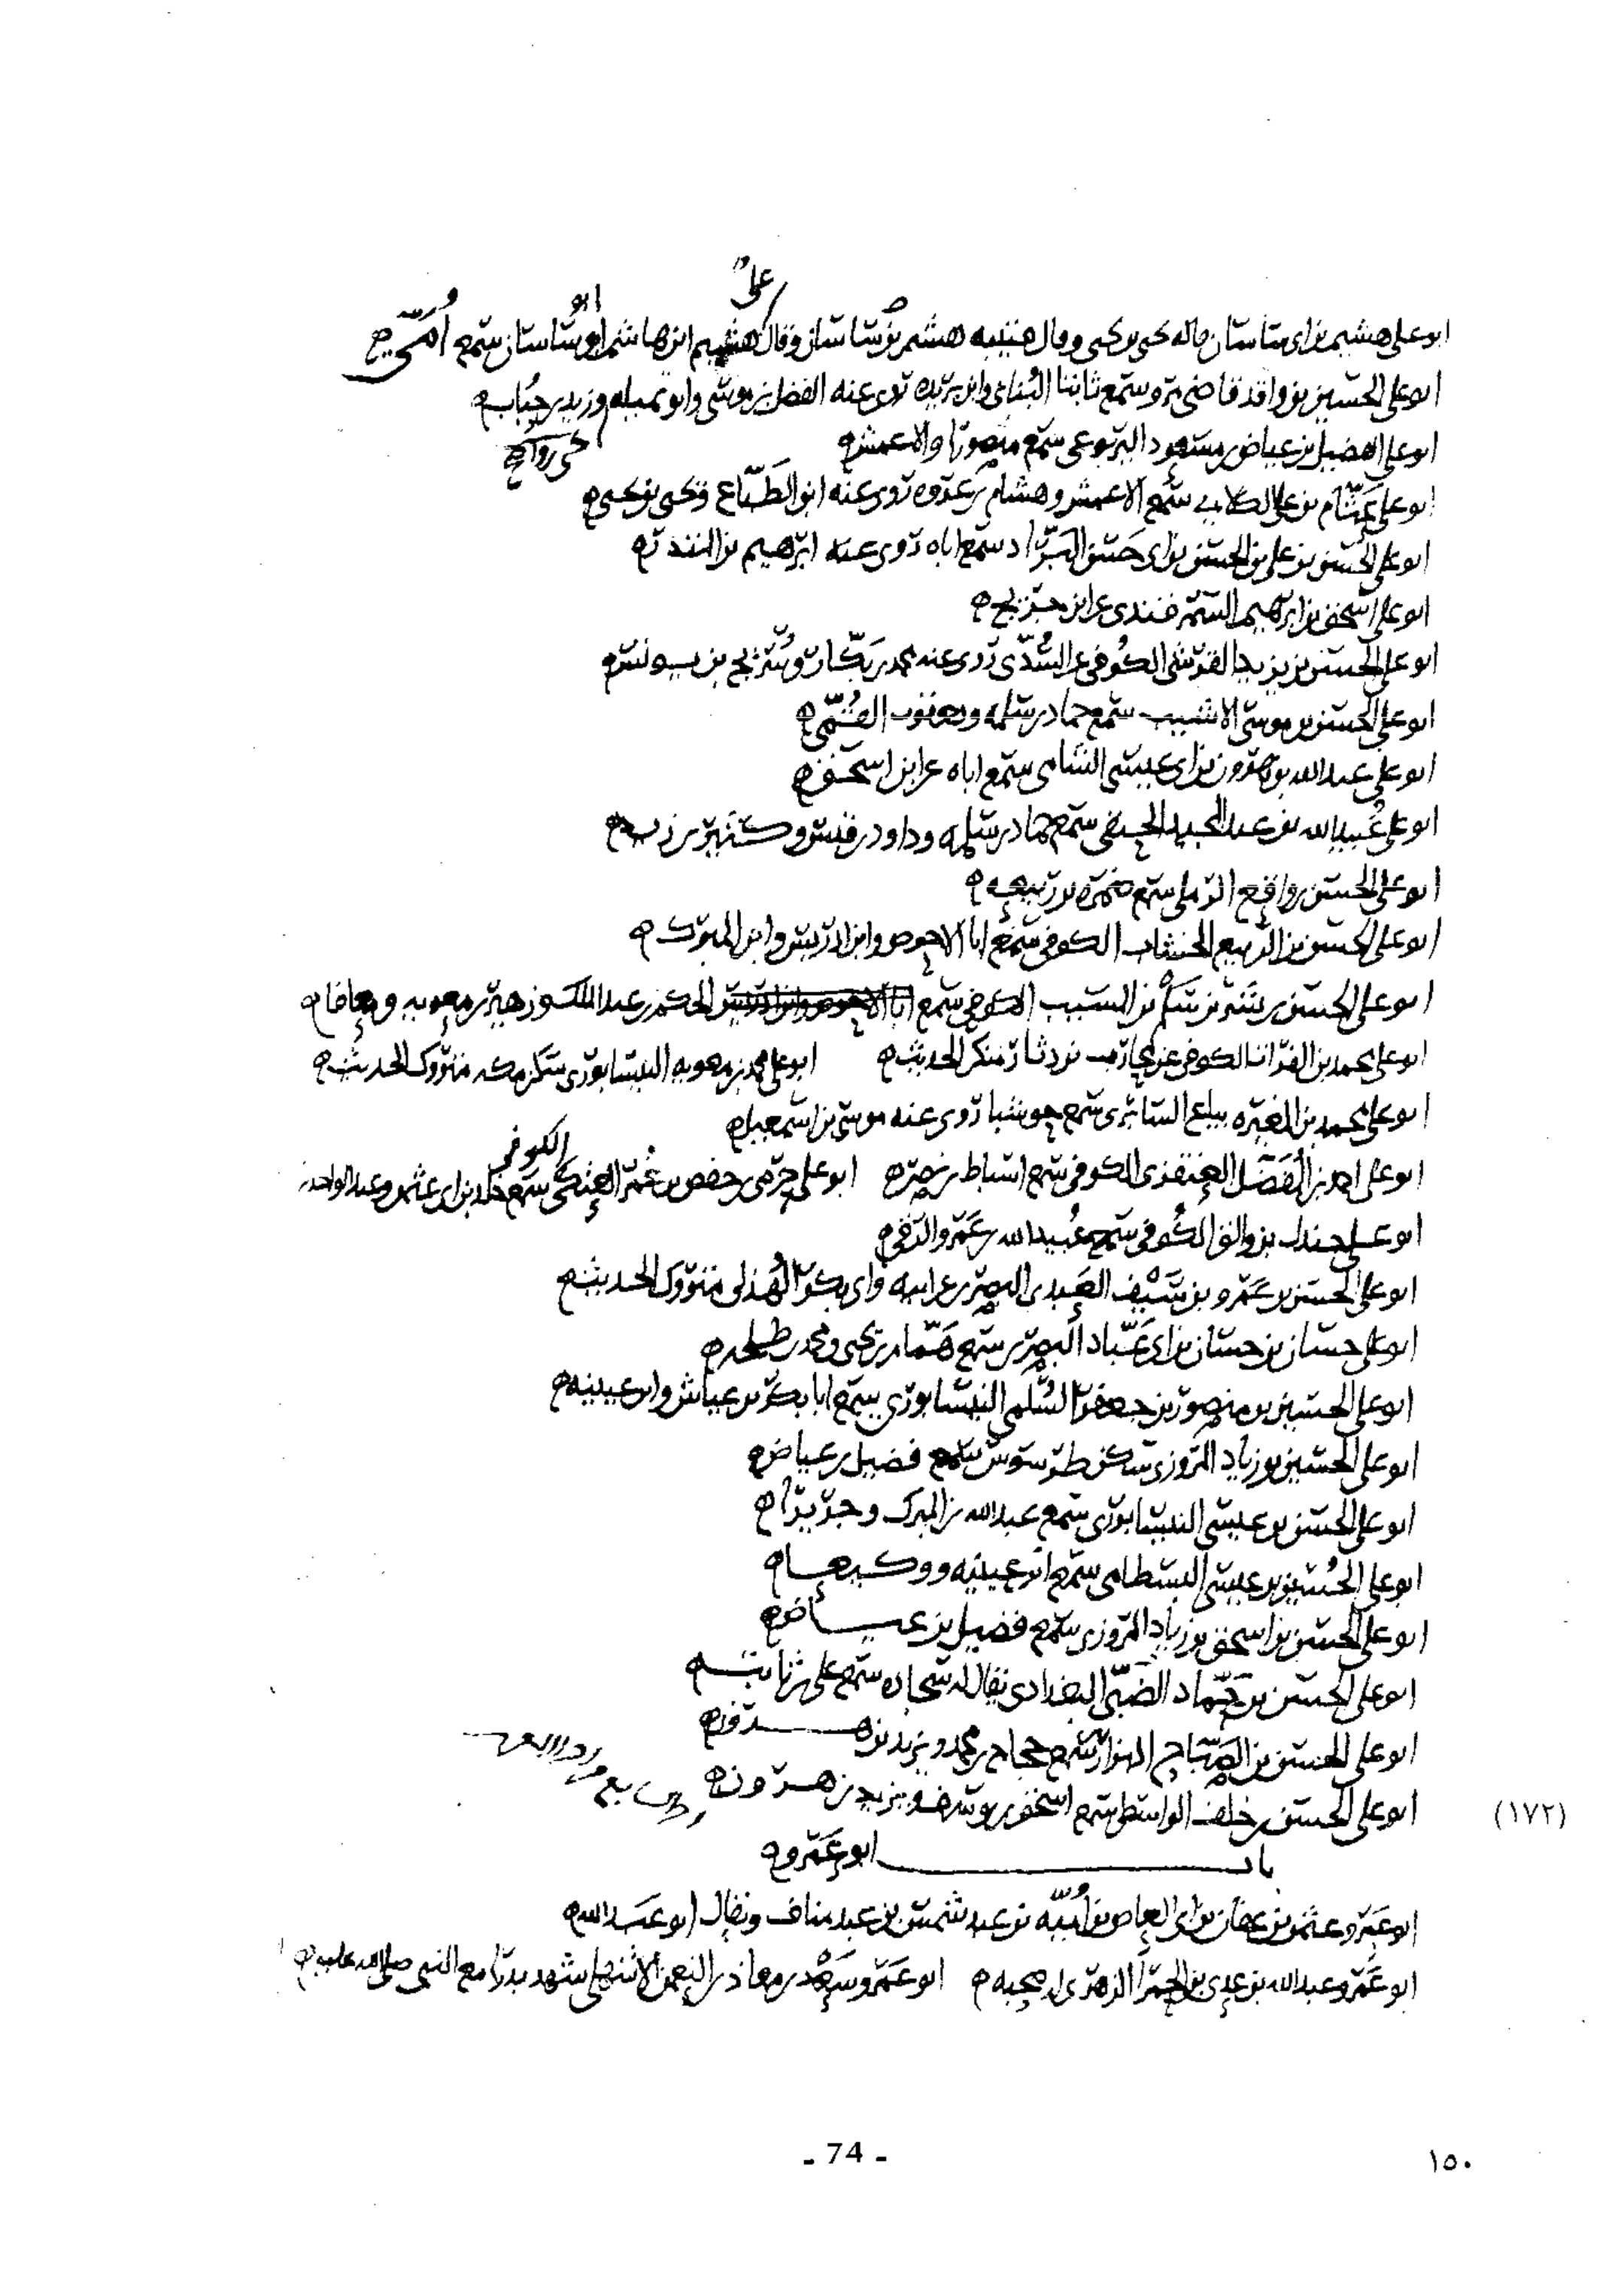 ابو علي هشيم بن ابي ساسان قاله يحيى بن يحيى وقال قتيبه هشيم بن ساسان وقال علي هشيم ابن هاشم ابو ساسان سمع امي
ابو علي الحسين بن واقد قاضي مرو سمع ثابتا البناني وابن بريده روى عنه الفضل بن موسى وابو تميله وزيد بن حباب
ابو علي فضيل بن عياض بن مسعود اليربوعي سمع منصورا والاعمش
ابو علي عثام بن علي الكلابي سمع الاعمش وهشام بن عروه روى عنه ابن الطباع ويحيى بن يحيى
ابو علي الحسن بن علي بن الحسن بن ابي حسن البراد سمع اباه روى عنه ابرهيم بن المنذر
ابو علي اسحق بن ابرهيم السمرقندي عن ابن جريج
ابو علي الحسن بن يزيد القرشي الكوفي عن السدي روى عنه محمد بن بكار وسريج بن يونس
ابو علي الحسن بن موسى الاشيب سمع حماد بن سلمه ويعقوب القمي
ابو علي عبد الله بن هرون بن ابي عيسى الشامي سمع اباه عن ابن اسحق
ابو علي عبيد الله بن عبد المجيد الحنفي سمع حماد بن سلمه وداود بن قيس وكثير بن زيد
ابو علي الحسن بن واقع الرملي سمع ضمره بن ربيعه
ابو علي الحسن بن الربيع الخشاب الكوفي سمع ابا الاحوص وابن ادريس وابن المبرك
ابو علي الحسن بن بشر بن سلم بن المسيب الكوفي سمع الحكم بن عبد الملك وزهير بن معويه ومعافا
ابو علي محمد بن الفرات الكوفي عن محارب بن دثار منكر الحديث ابو علي محمد بن معويه النيسابوري سكن مكه متروك الحديث
ابو علي محمد بن المغيره بياع السابري سمع حوشبا روى عنه موسى بن اسمعيل
الكوفي
ابو علي احمد بن المفضل العنقزي الكوفي سمع اسباط بن نصر ابو علي حرمي بن حفص بن عمر العتكي سمع خلد بن ابي عثمن وعبد الواحد
ابو علي جندل بن والق الكوفي سمع عبيد الله بن عمرو الرقي
ابو علي الحسن بن عمرو بن سيف العبدي البصري عن ابيه وابي بكر الهذلي متروك الحديث
ابو علي حسان بن حسان بن ابي عباد البصري سمع همام بن يحيى ومحمد بن طلحه
ابو علي الحسين بن منصور بن جعفر السلمي النيسابوري سمع ابا بكر بن عياش وابن عيينه
ابو علي الحسين بن زياد المروزي سكن طرسوس سمع فضيل بن عياض
ابو علي الحسن بن عيسى النيسابوري سمع عبد الله بن المبرك وجريرا
ابو علي الحسين بن عيسى البسطامي سمع ابن عيينه ووكيعا
ابو علي الحسن بن اسحق بن زياد المروزي سمع فضيل بن عياض
ابو علي الحسن بن حماد الضبي البغدادي يقال له سجاده سمع علي بن ثابت
ابو علي الحسن بن الصباح البزار سمع حجاج بن محمد ويزيد بن هرون
ابو علي الحسن بن خلف الواسطي سمع اسحق بن يوسف ويزيد بن هرون
(١٧٢)
باب ابو عمرو
ابو عمرو عثمن بن عفان بن ابي العاص بن اميه بن عبد شمس بن عبد مناف ويقال ابو عبد الله
ابو عمرو عبد الله بن عدي بن الحمرا الزهري له صحبه ابو عمرو سعد بن معاذ بن النعمن الاشهلي شهد بدرا مع النبي صلى الله عليه
- 74 -
١٥٠